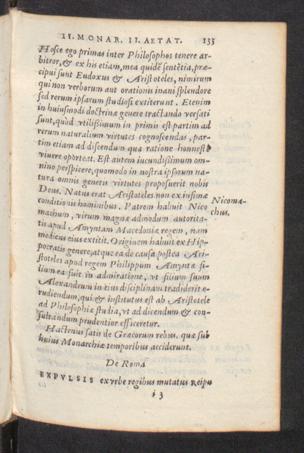 II. MONAR. II. AETAT. 133
Hosce ego primas inter Philosophos tenere ar-
bitror, & ex his etiam, mea quidẽ sentẽtia, præ-
cipui sunt Eudoxus & Aristoteles, nimirum
qui non verborum aut orationis inani splendore
sed rerum ipsarum studiosi extiterunt. Etenim
in huiusmodi doctrinæ genere tractando versati
sunt, quod vtilissimum in primis est partim ad
rerum naturalium virtutes cognoscendas, par-
tim etiam ad discendum qua ratione honestè
viuere oporteat. Est autem iucundissimum om-
nino perspicere, quomodo in nostra ipsorum na-
tura omnis generis virtutes proposuerit nobis
Deus. Natus erat Aristoteles non ex infimæ
conditionis hominibus. Patrem habuit Nico
machum, virum magnæ admodum autorita-
tis apud Amyntam Macedoniæ regem, nam
medicus eius extitit. Originem habuit ex Hip-
pocratis genere, atque ea de causa postea Ari-
stoteles apud regem Philippum Amyntæ fi-
lium ea fuit in admiratione, vt filium suum
Alexandrum in eius disciplinam tradiderit e-
rudiendum, qui & institutus est ab Aristotele
ad Philosophiæ studia, vt ad dicendum & con-
sultandum prudentior efficeretur.
Hactenus satis de Græcorum rebus, quæ sub
huius Monarchiæ temporibus acciderunt.
De Roma
EXPVLSIS ex vrbe regibus mutatus reipu
Nicoma-
chus.